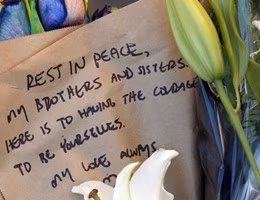 REST IN PEACE,
MY BROTHERS AND SISTERS.
HERE IS TO HAVING THE COURAGE
TO BE YOURSELVES.
MY LOVE ALWAYS